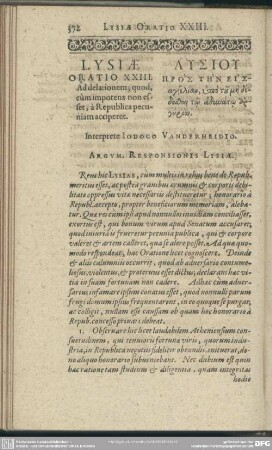 572 LYSIÆ ORATIO XXIII.
LYSIÆ
ORATIO XXIII.
Ad delationem; quod,
cùm impotens non es-
set, à Republica pecu-
niam acciperet.
ΛΥΣΙΟΥ
ΠΡΟΣ ΤΗΝ ΕΙΣ
Interprete IODOCO VANDERHEIDIO.
ARGVM. RESPONSIONIS LYSIÆ.
Rem hic LYSIAS, cum multis in rebus bene de Republ.
meritus esset, ac postea gravibus animi & corporis
oppressus vitæ necessariis destitueretur; honorario à
Republ. accepto, propter beneficiorum memoriam,
Quæ res cum ipsi apud nonnullos invidiam conciliasset,
exortus est, qui bonum virum apud Senatum accusaret;
quod injuria is frueretur pecunia publica, qui & corpore
valeret & artem calleret, qua se alere posset. Ad quæ quo-
modo respondeat, hac Oratione licet cognoscere.
& aliis calumniis occurrit, quod ab adversario contume-
liosus, violentus, & protervus esset dictus; declarat hac
in suam fortunam non cadere. Adhæc cùm adver-
sarius infamare ipsum conatus esset, quod nonnulli parum
frugi domum ipsius frequentarent, in eo quoque se purgat,
ac colligit, nullam esse caussam ob quam hoc honorario à
Repub. concesso privari debeat.
1. Observare hic licet laudabilem Atheniensium con-
suetudinem, qui tenuioris fortunæ viris, quorum indu-
stria, in Republica negotiis fideliter obeundis
aliquo honorario subveniebant. Nec dubium est quin
hac ratione tam studium & diligentia, quam integritas
hodie